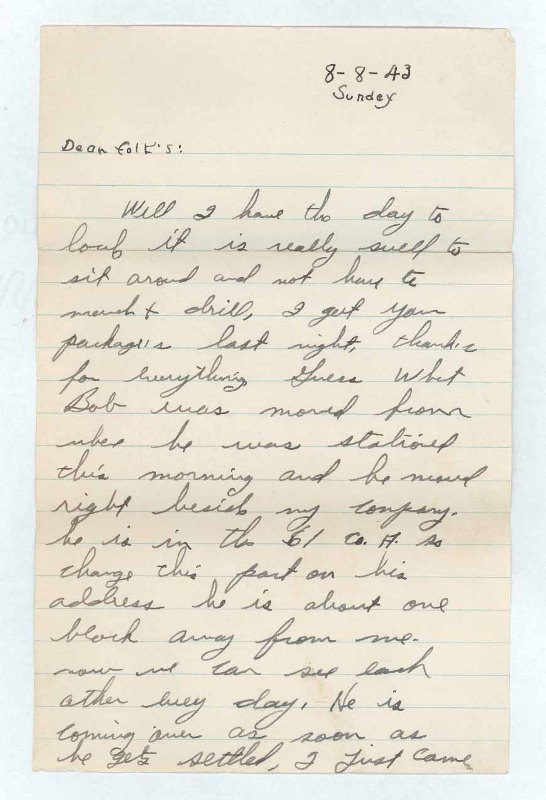 8-8-43
Sunday
Dear folk's:
Well I have the day to
loaf it is really swell to
sit aroud and not have to
march & drill, I got your
package's last night, thank's
for everything Guess What
Bob was moved from
where he was stationed
this morning and he moved
right beside my company.
he is in the 61 Co. A. so
change this part on his
address he is about one
block away from me.
now we can see each
other every day, He is
coming over as soon as
he gets settled, I just came